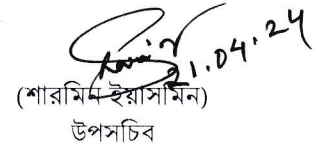 21.04.24
(শারমিন ইয়াসমিন)
উপসচিব